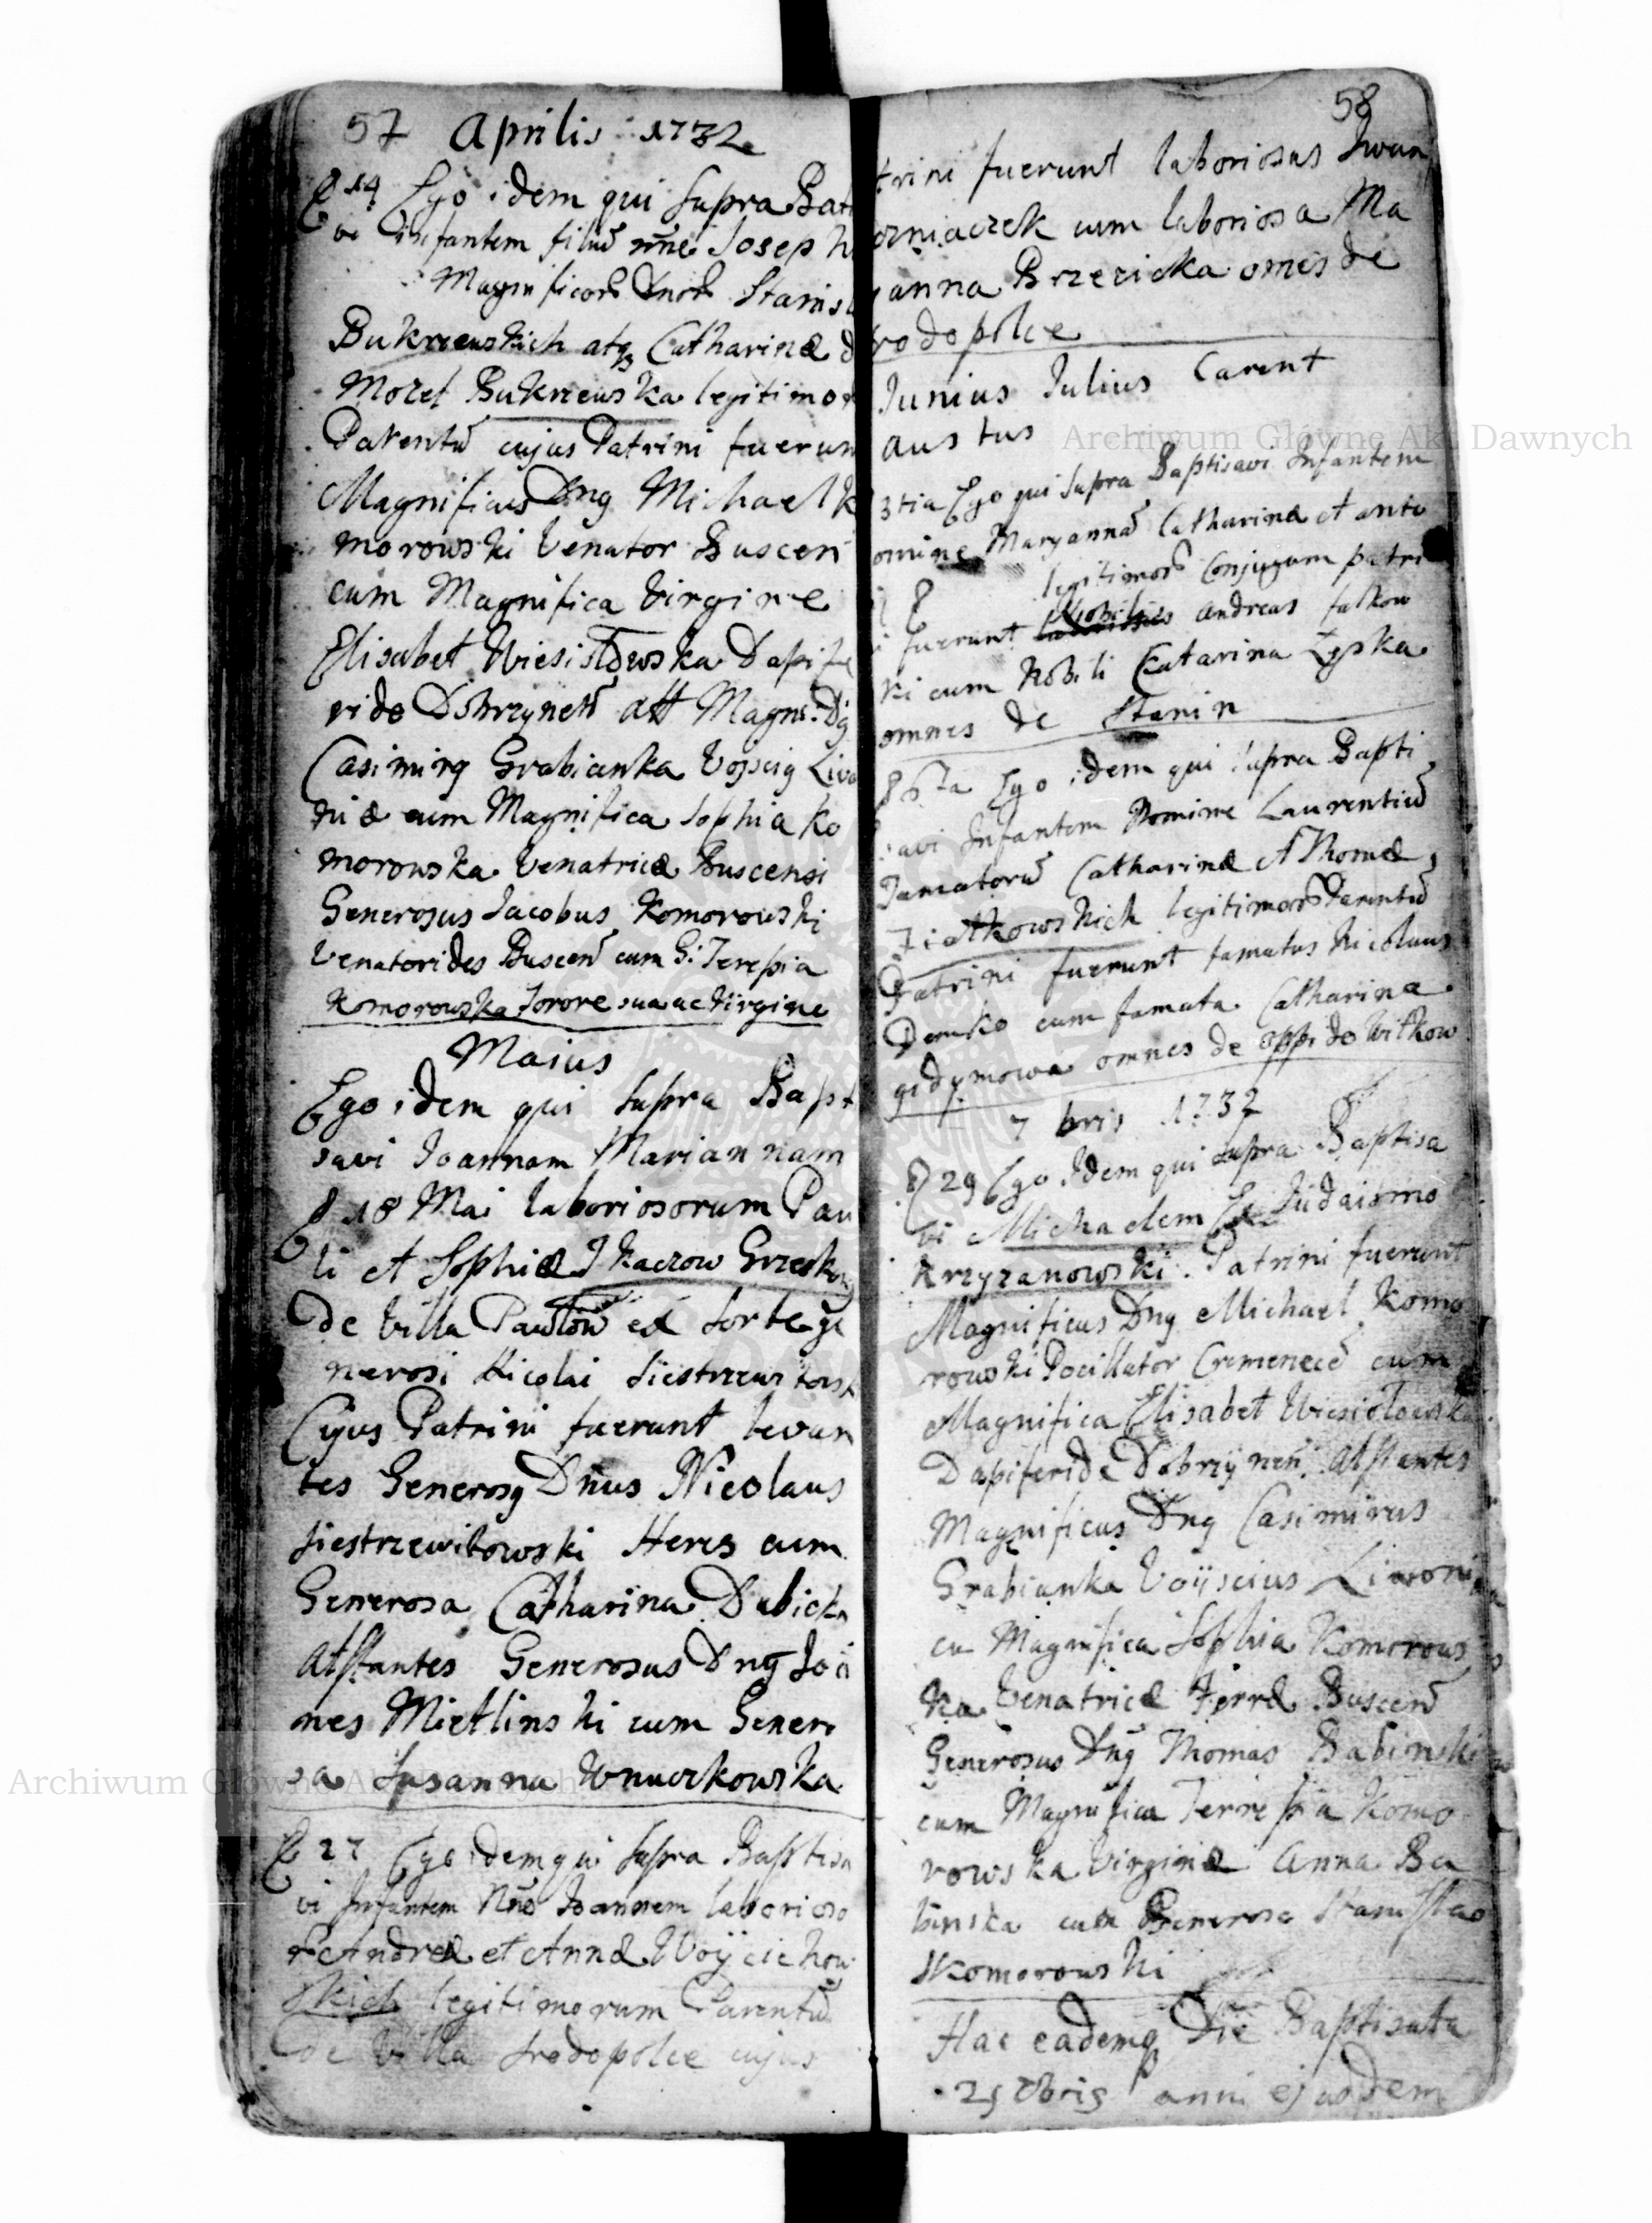 57 Aprilis 1732
14 Ego idem qui supra Bati
vi infantem filiū nne Joseph
Magnificorū Dnor Stanis
Bukrzewskich atq Catharinæ d
Mozel Bukrzewska legitimor
Parentū cujus Patrini fuerun
Magnificus Dnq Michael K
morowski Venator Buscen
cum Magnifica Virgine
Elisabet Wiesiołowska Dapife
ride Dobrzyneñ att Magni: Dq
Casimirq Grabianka Vojscig Livo
niæ cum Magnifica Sophia Ko
morowska Venatricæ Buscensi
Generosus Jacobus Komorowski
Venatorides Buscen cum G: Teresia
Komorowska Sorore sua ac Virgine
Maius
Ego idem qui supra Bapt
savi Joannam Mariannam
18 Mai laboriosorum Pau
li et Sophiæ Tkaczow Grzesko
de Villa Pawłow ex sorte ge
nerosi Nicolai Siestrzewitows
Cujus Patrini fuerunt levan
tes Generosq Dnus Nicolaus
Siestrzewitowski Heres cum
Generosa Catharina Dubicka
Atstantes Generosus Dnq Joa
nes Mietlinski cum Genero
sa Susanna Wnuczkowska
27 Ego idem qui supra Baptisa
vi Infantem Nne Joannem laborioso
r Andreæ et Annæ Woÿciehow
skich legitimorum Parentū
de Villa Srodopolce cujus
58
trini fuerunt laboriosus Iwan
orniaczek cum laboriosa Ma
anna Brzezicka omes de
rodopolce
Junius Julius Carent
austus
3tia Ego qui supra Baptisavi Infantem
omine Maryannā Catharinæ et anto
legitimorū Conjugum patri
i fuerunt Nobiles Andreas Falkow
ki cum Nobili Catarina Zyska
omnes de Stanin
8 6ta Ego idem qui supra Bapti
avi Infantem Nomine Laurentiū
Famatorū Catharinæ et Thomæ
Ziołkowskich legitimorū Parentū
Patrini fuerunt famatus Nicolaus
Demko cum famata Catharina
gidymowa omnes de oppido Witkow
7 bris 1732
29 Ego Idem qui supra Baptisa
vi Michaelem Ex Judaismo
Krzyzanowski. Patrini fuerunt
Magnificus Dnq Michael Komo
rowski Pocillator Cremenecē cum
Magnifica Elisabet Wiesiołowska
Dapiferide Dobrzyneñ. Atstantes
Magnificus Dnq Casimirus
Grabianka Voÿscius Livoni
cu Magnifica Sophia Komorows
ka Venatricæ Terræ Buscen
Generosus Dnq Thomas Babinski
cum Magnifica Terresia Komo
rowska Virginæ Anna Ba
binska cum Generoso Stanislao
Komorowski
Hac eademq Die Baptisata
29 7bris anni ejusdem
Archiwum Główne Akt Dawnych
Archiwum Główne Akt Dawnych